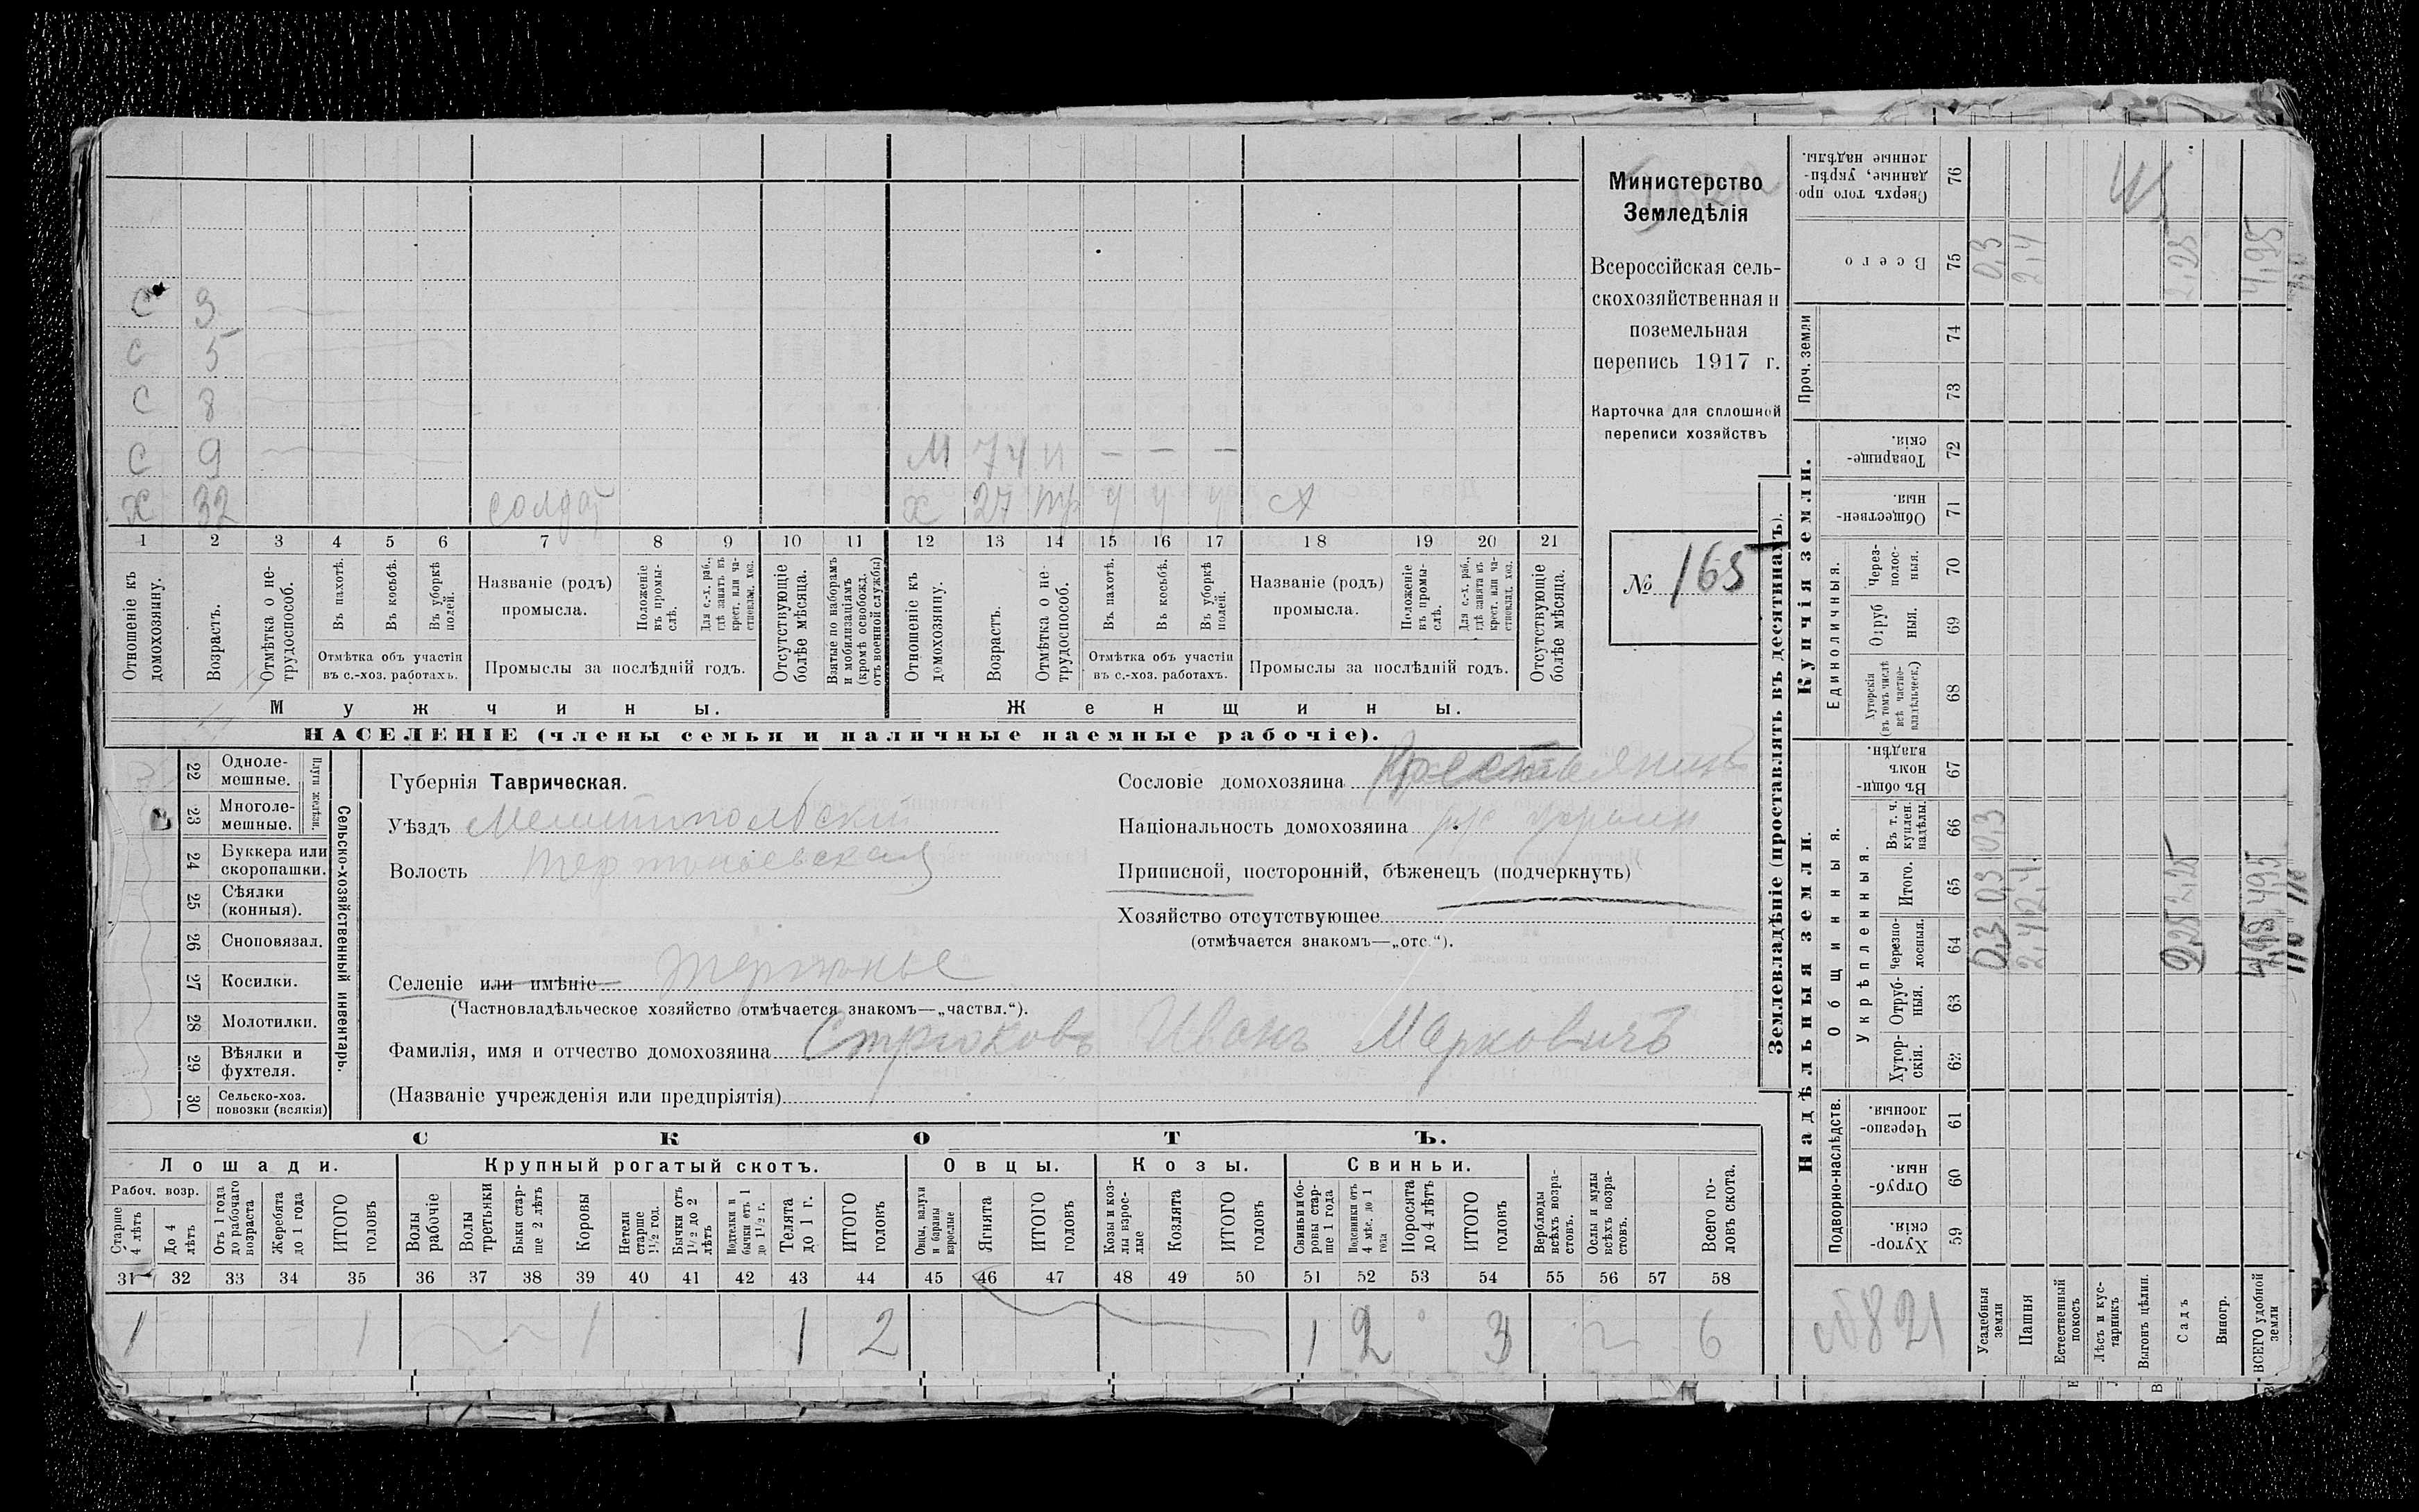 С 3
С 5
С 8
С 9
М 74 н — — —
Х 32 солдат
Х 27 У У У
1 2 3 4 5 6 7 8 9 10 11 12 13 14 15 16 17 18 19 20 21
Отношеніе къ домохозяину.
Возрастъ.
Отмѣтка о нетрудоспособ.
Въ пахотѣ.
Въ косьбѣ.
Въ уборкѣ полей.
Отмѣтка объ участіи
въ с.-хоз. работахъ.
Названіе (родъ)
промысла.
Положеніе въ промыслѣ.
Для с.-х. раб., гдѣ занятъ въ крест. или частновлад. хоз.
Промыслы за послѣдній годъ.
Отсутствующіе болѣе мѣсяца.
Взятые по наборамъ и мобилизаціямъ (кромѣ освобожд. отъ военной службы)
Отношеніе къ домохозяину.
Возрастъ.
Отмѣтка о нетрудоспособ.
Въ пахотѣ.
Въ косьбѣ.
Въ уборкѣ полей.
Отмѣтка объ участіи
въ с.-хоз. работахъ.
Названіе (родъ)
промысла.
Положеніе въ промыслѣ.
Для с.-х. раб., гдѣ занята въ крест. или частновлад. хоз.
Промыслы за послѣдній годъ.
Отсутствующіе болѣе мѣсяца.
Мужчины.
Женщины.
НАСЕЛЕНІЕ (члены семьи и наличные наемные рабочіе).
Министерство
Земледѣлія
Всероссійская сель-
скохозяйственная и
поземельная
перепись 1917 г.
Карточка для сплошной
переписи хозяйствъ
№ 165
22 Одноле-
мешные.
23 Многоле-
мешные.
Плуги желѣзн.
24 Буккера или
скоропашки.
25 Сѣялки
(конныя).
26 Сноповязал.
27 Косилки.
28 Молотилки.
29 Вѣялки и
фухтеля.
30 Сельско-хоз.
повозки (всякія)
Сельско-хозяйственный инвентарь.
Губернія Таврическая.
Уѣздъ Мелитопольскій
Волость
Селеніе или имѣніе
(Частновладѣльческое хозяйство отмѣчается знакомъ—„частвл.“).
Фамилія, имя и отчество домохозяина Стрюковъ Иванъ Марковичъ
(Названіе учрежденія или предпріятія)
Сословіе домохозяина Крестьянинъ
Національность домохозяина
Приписной, посторонній, бѣженецъ (подчеркнуть)
Хозяйство отсутствующее
(отмѣчается знакомъ—„отс.“).
СКОТЪ.
Лошади. Крупный рогатый скотъ. Овцы. Козы. Свиньи.
Рабоч. возр.
Старше 4 лѣтъ
До 4 лѣтъ
Отъ 1 года до рабочаго возраста
Жеребята до 1 года
ИТОГО головъ
Волы рабочіе
Волы третьяки
Быки старше 2 лѣтъ
Коровы
Нетели старше 1½ год.
Бычки отъ 1½ до 2 лѣтъ
Подтелки и бычки отъ 1 до 1½ г.
Телята до 1 г.
ИТОГО головъ
Овцы, валухи и бараны взрослые
Ягнята
ИТОГО головъ
Козы и козлы взрослые
Козлята
ИТОГО головъ
Свиньи и боровы старше 1 года
Подсвинки отъ 4 мѣс. до 1 года
Поросята до 4 лѣтъ
ИТОГО головъ
Верблюды всѣхъ возрастовъ.
Ослы и мулы всѣхъ возрастовъ.
Всего головъ скота.
31 32 33 34 35 36 37 38 39 40 41 42 43 44 45 46 47 48 49 50 51 52 53 54 55 56 57 58
1 1 1 1 2 1 2 3 6
Землевладѣніе (проставлять въ десятинахъ).
Надѣльныя земли.
Купчія земли.
Проч. земли
Подворно-наслѣдств.
Общинныя.
Укрѣпленныя.
Единоличныя.
Сверхъ того проданные, укрѣпленные надѣлы. 76
Всего 75
74
73
Товарищескія. 72
Общественныя. 71
Черезполосныя. 70
Отрубныя. 69
Хуторскія (въ томъ числѣ всѣ частновладѣльческ.) 68
Въ общинномъ владѣн. 67
Въ т. ч. куплен. надѣлы. 66
Итого. 65
Черезполосныя. 64
Отрубныя. 63
Хуторскія. 62
Черезполосныя. 61
Отрубныя. 60
Хуторскія. 59
Усадебныя земли
0,3 0,3 0,3 0,3
Пашня
2,4 2,4 2,4
Естественный покосъ
Лѣсъ и кустарникъ
Выгонъ цѣлин.
Садъ
2,25 2,25 2,25
Виногр.
ВСЕГО удобной земли
4,95 4,95 4,95